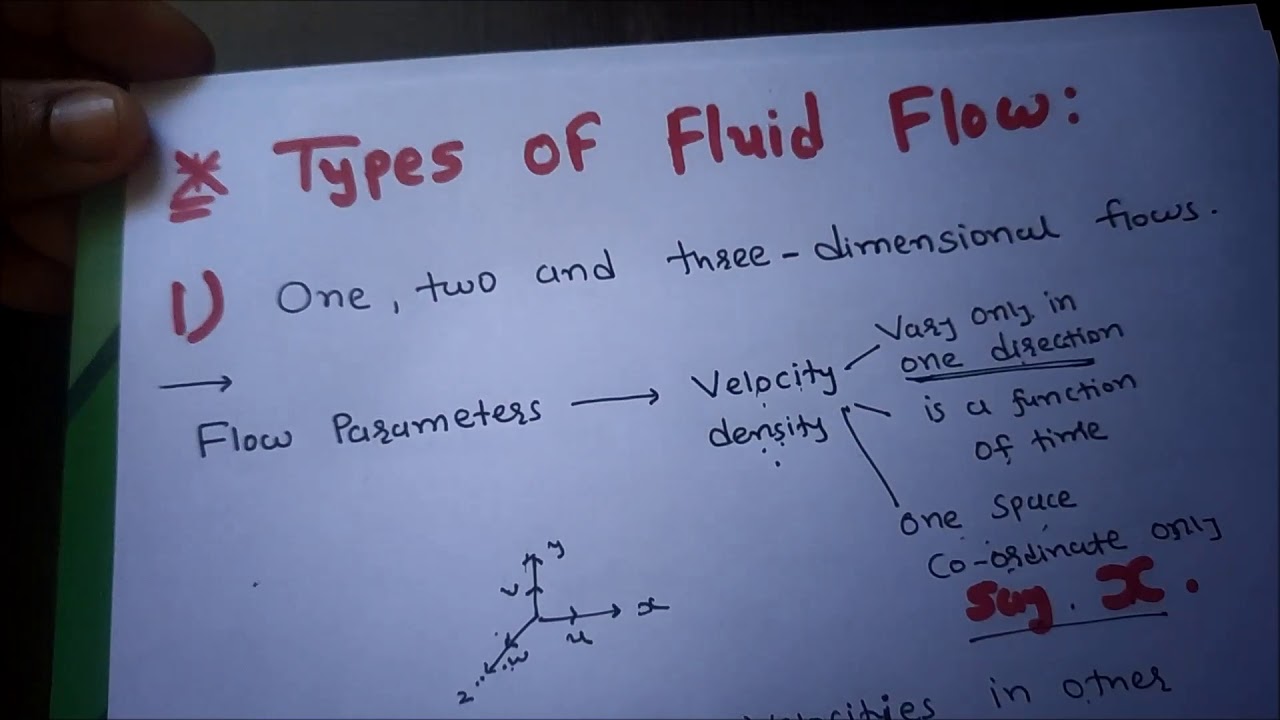 * Types of Fluid Flow:
1) One, two and three-dimensional flows.
→ Flow Parameters → Velocity
density
Vary only in
one direction
is a function
of time
one space
Co-ordinate only
Say. x.
y
v
x
u
w
z
in other